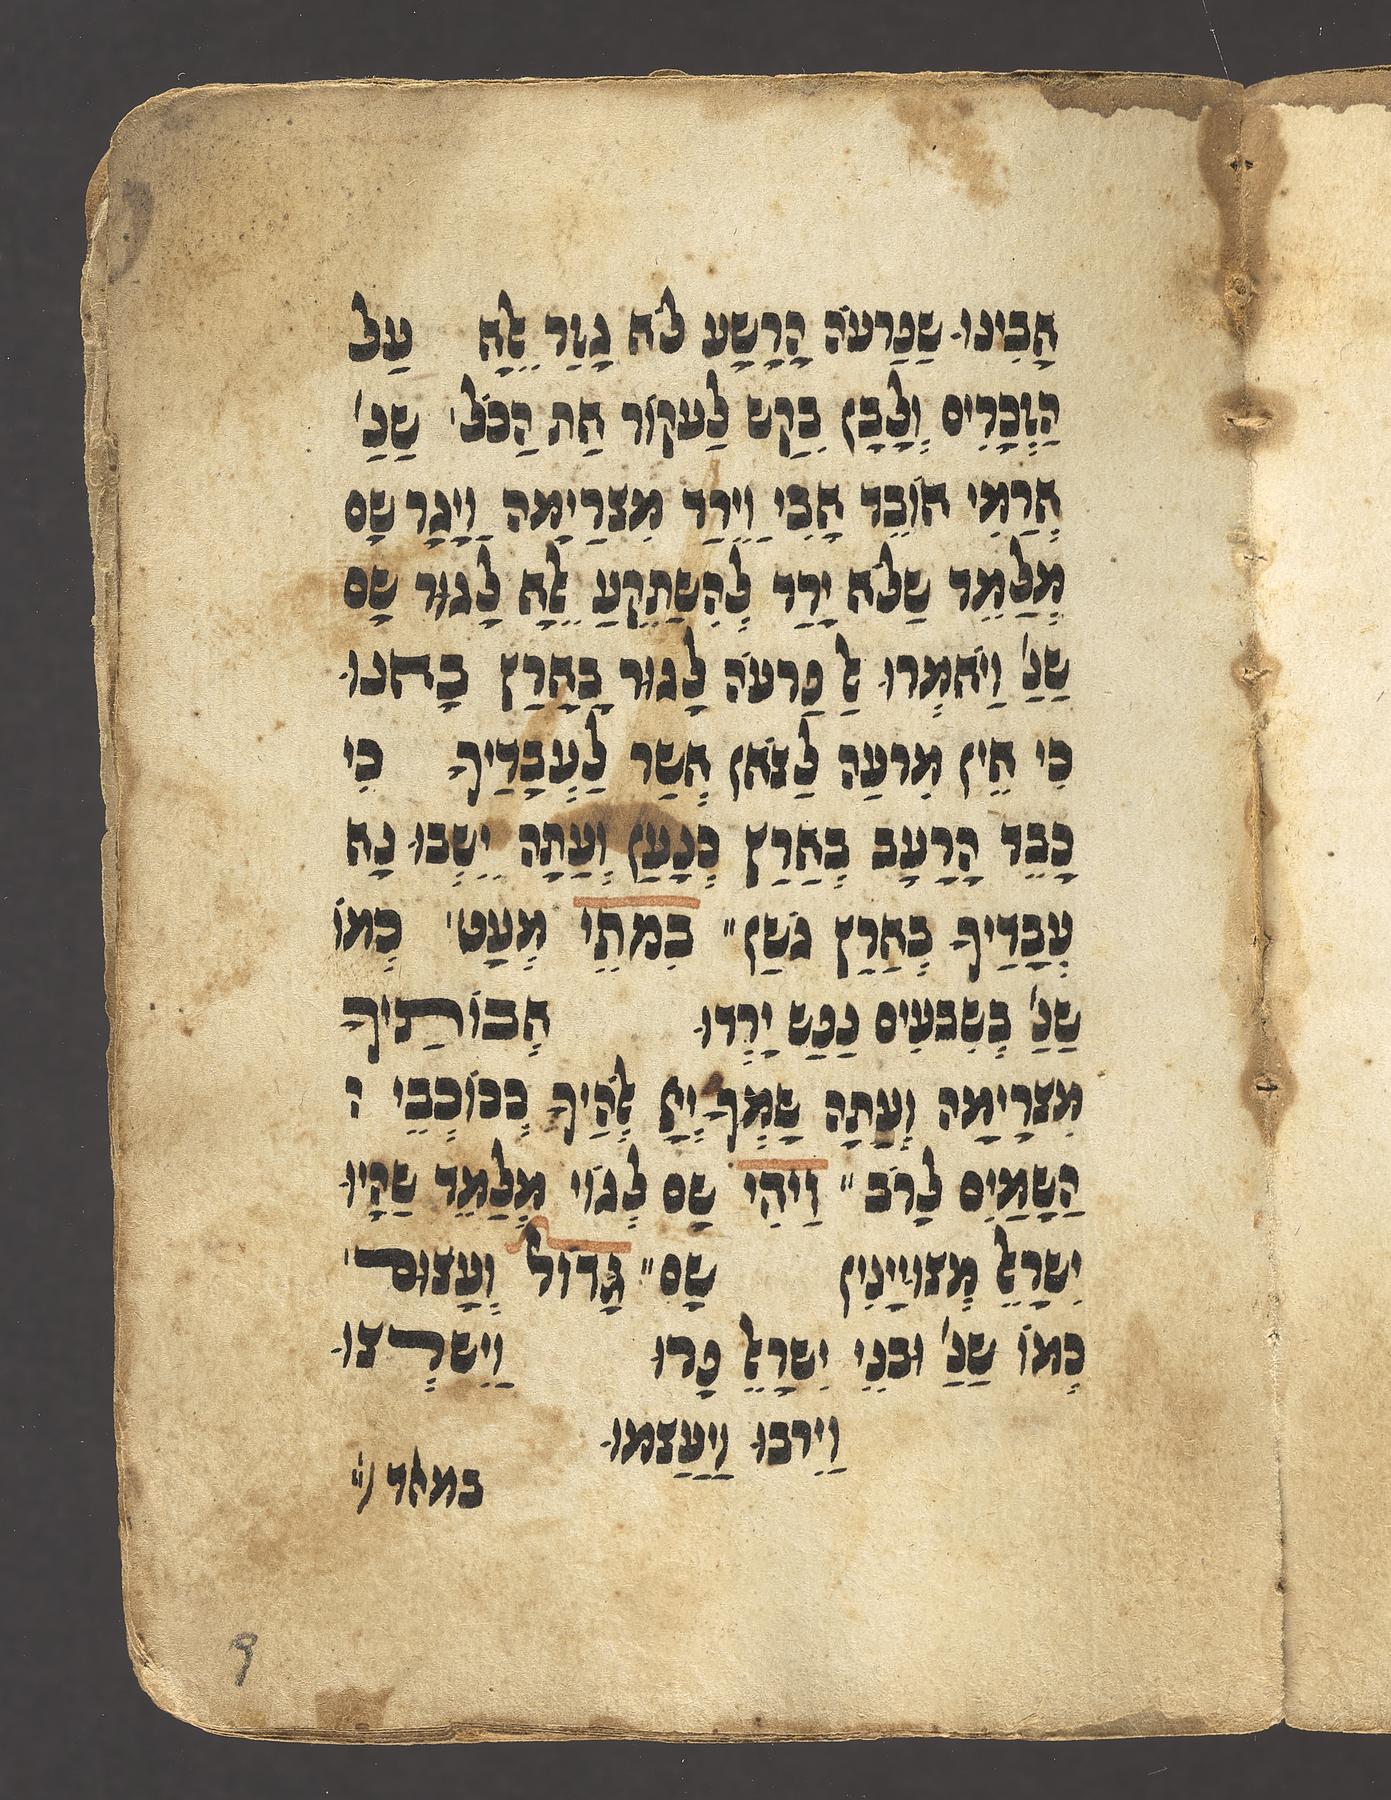 אָבִינוּ שַפַרעֹה הָרָשָע לֹא גָזַר אֵלָא עַל
הַזְכָרִים וְלָבָן בִקַש לַעקוֹר אַת הַכֹל׳ שַנַ׳
אְרַמִי אוֹבֵד אָבִי וַיֵרַד מִצרַיִמָה וַיָגָר שָם
מְלַמֵד שַלֹא יָרַד לְהִשתַקֵעַ אֵלָא לָגוּר שָם
שַנַ׳ וַיֹאמְרוּ אַל פַרעֹה לָגוּר בָאָרַץ בָאנוּ
כִי אֵין מִרעַה לַצֹאן אְשַר לַעְבָדַיךָ כִי
כָבֵד הָרָעָב בְאַרַץ כְנָעַן וְעַתָה יֵשְבוּ נָא
עְבָדַיךָ בְאַרַץ גֹשַן״ בִמתֵי מְעָט׳ כְמוֹ
שַנַ׳ בְשִבעִים נַפַש יָרְדוּ אְבוֹתַיךָ
מִצרַיִמָה וְעַתָה שָמְךָ יְיָ אְלֹהַיךָ כְכוֹכְבֵי ה
הַשָמַיִם לָרֹב״ וַיהִי שָם לְגוֹי מְלַמֵד שַהָיוּ
יִשרָאֵל מְצוּיָינִין שָם״ גָדוֹל וְעָצוּם׳
כְמוֹ שַנַ׳ וּבנֵי יִשרָאֵל פָרוּ וַיִשרְצוּ
וַיִרבוּ וַיַעַצמוּ
במאד
9